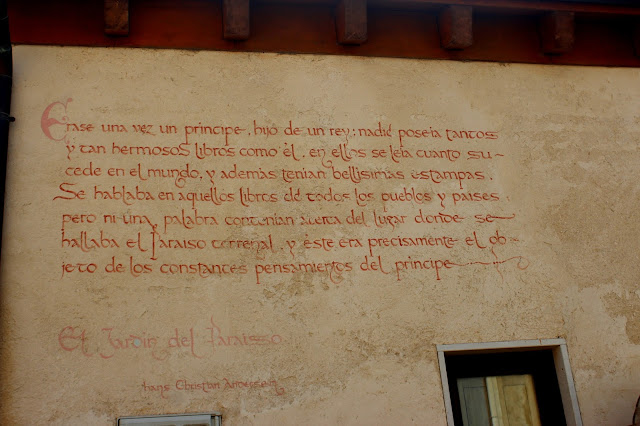 Erase una vez un principe, hijo de un rey; nadie poseia tantos
y tan hermosos libros como él, en ellos se leia cuanto su-
cede en el mundo, y además tenian bellisimas estampas.
Se hablaba en aquellos libros de todos los pueblos y paises
pero ni una palabra contenian acerca del lugar donde se
hallaba el Paraiso terrenal, y éste era precisamente el ob-
jeto de los constantes pensamientos del principe
El Jardin del Paraisso
Hans Christian Andersen